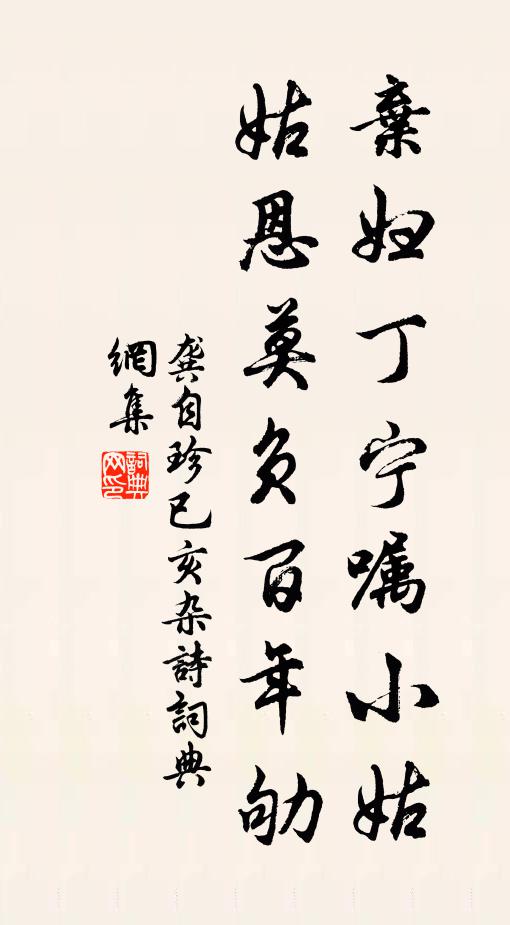 棄妇丁宁嘱小姑
姑恩莫负百年劬
龚自珍已亥杂詩詞典
網集
詞典网印